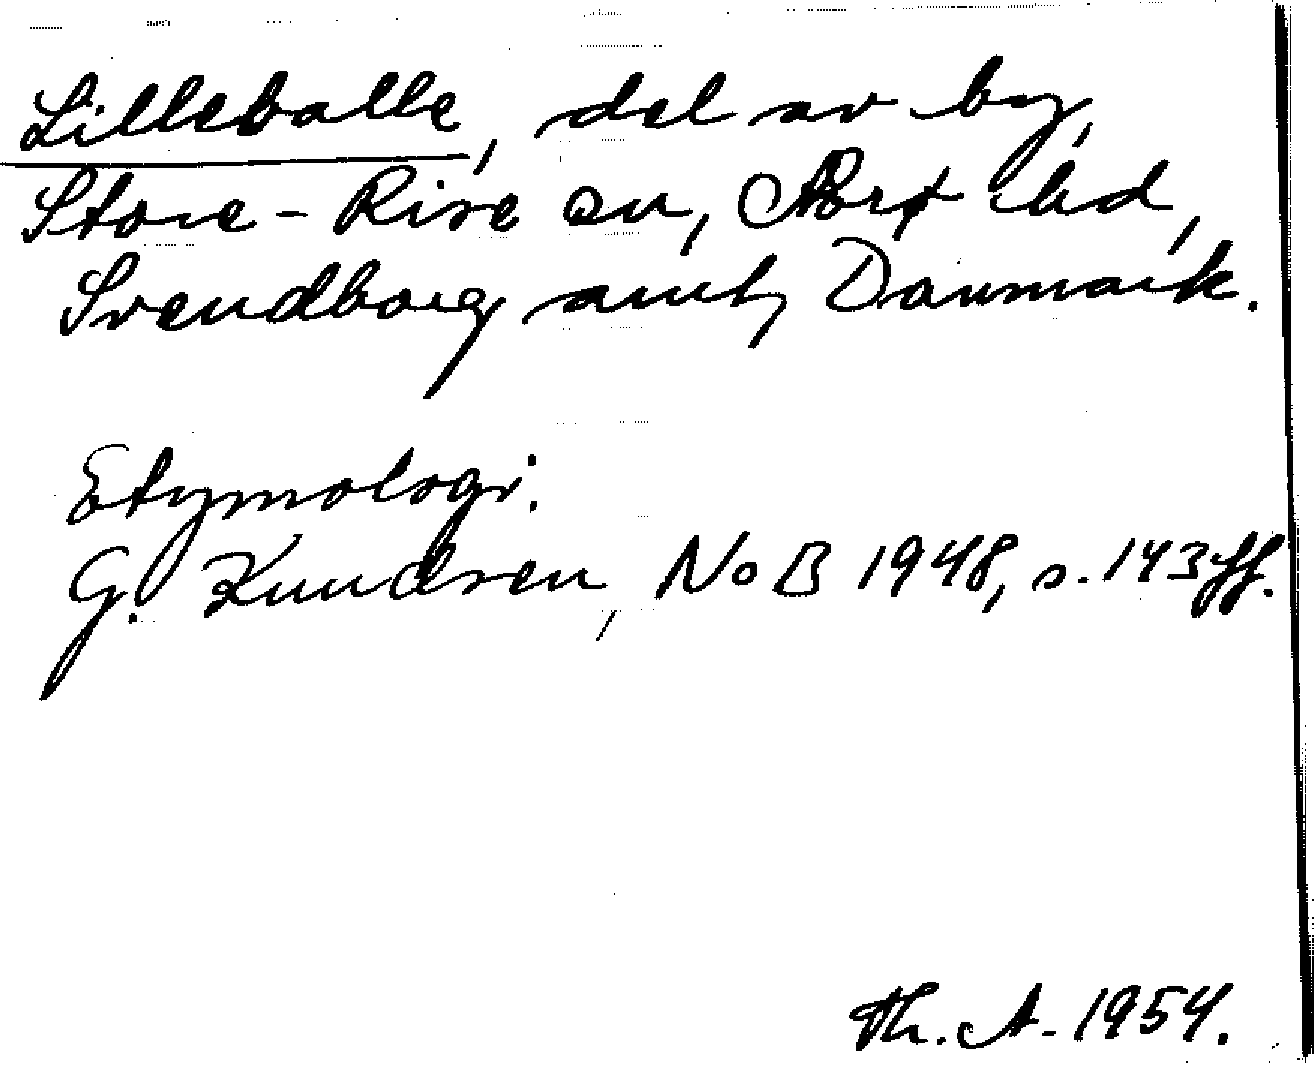 Lilleballe, del av by,
Store-Rise sn, Ærø hd,
Svendborg amt, Danmark.
Etymologi:
G. Knudsen, NoB 1948, s. 143 ff.
Th. A. 1954.